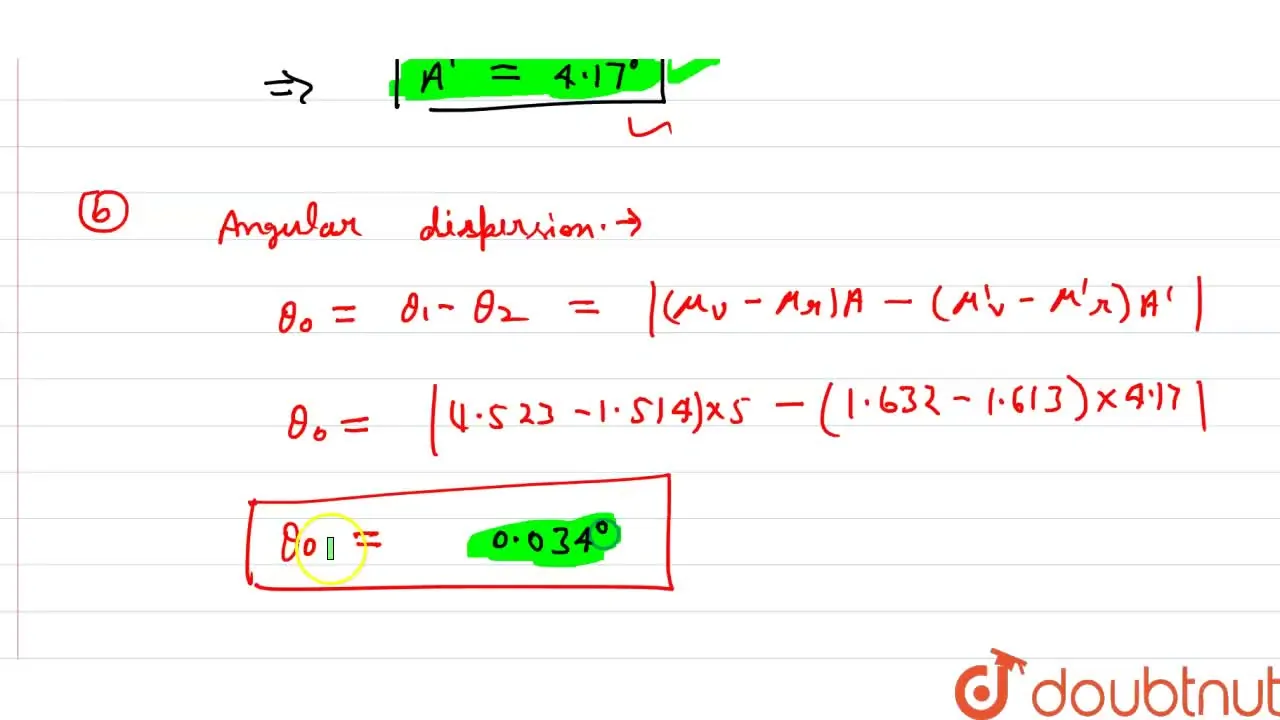 ⇒ A' = 4.17°
(b) Angular dispersion. →
θ₀ = θ₁ - θ₂ = |(μᵥ - μᵣ)A - (μ'ᵥ - μ'ᵣ)A'|
θ₀ = |(4.523 - 1.514)×5 - (1.632 - 1.613)×4.17|
θ₀ = 0.034°
doubtnut